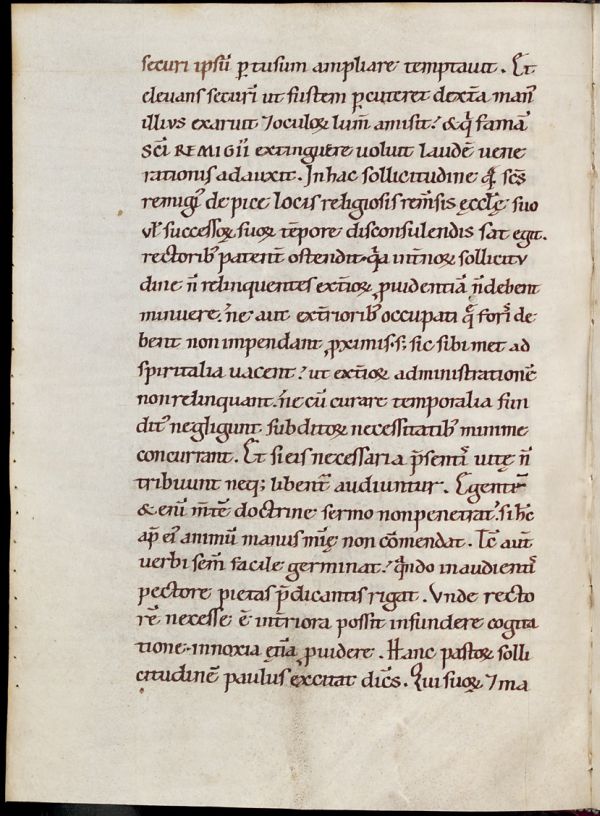 securi ipsū ꝑtusum ampliare temptauit . Et
eleuans securī ut fustem ꝑcuteret dext̄a man᷒
illius exaruit ⁊oculoꝝ lum̄ amisit? & q̓ famā
SC̄I REMIGII extinguere uoluit laudē uene
rationis adauxit . In hac sollicitudine q̄ sc̄s
remigi᷒ de pice locis religiosis rem̄sis ęcclę suo
uł successoꝝ suoꝝ tēpore disconsulendis sat egit .
rectorib᷒ patent̄ ostendit . q̓a int̄noꝝ sollicitu
dine n̄ relinquentes ext̄ioꝝ ꝓuidentiā n̄ debent
minuere . ne aut ext̄riorib᷒ occupati q̨ forı᷒ de
bent non impendant ꝓximis . s; sic sibimet ad
spiritalia uacent? ut ext̄ioꝝ administrationē
non relinquant . ne cū curare temporalia fun
dit᷒ negligunt subditoꝝ necessitatib᷒ minime
concurrant . Et si eis necessaria p̄sentı᷒ uitę n̄
tribuunt neq; libent̄ audiuntur . Egentı᷒
& eni᷒ m̄te doctrine sermo non penetrat . si hc̄
ap̄ ei᷒ animū manus mīę non cōmendat . Tc̄ aut̄
uerbi sem̄ facile germinat? q̄ndo in audientı᷒
pectore pietas p̄dicantis rigat . Vnde recto
rē necesse ē int̄riora possit infundere cogita
tione innoxia ęt̄ia ꝓuidere . Hanc pastoꝝ solli
citudinē paulus excitat dic̄s . Qui suoꝝ ⁊ ma